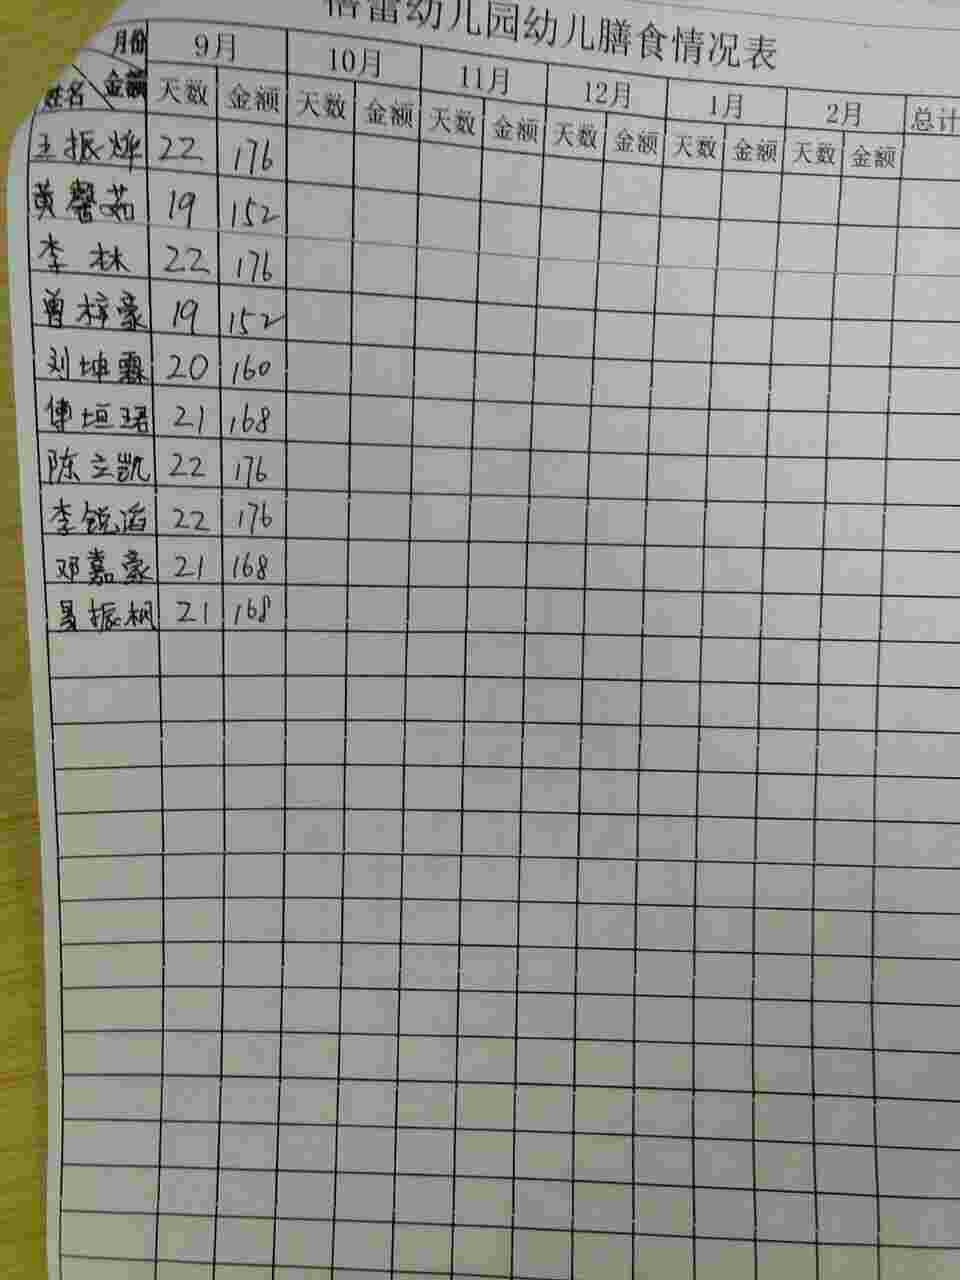 蓓蕾幼儿园幼儿膳食情况表
月份 9月 10月 11月 12月 1月 2月 总计
姓名 金额 天数 金额 天数 金额 天数 金额 天数 金额 天数 金额 天数 金额
王振烨 22 176
黄馨茹 19 152
李林 22 176
曾梓豪 19 152
刘坤霖 20 160
傅垣珺 21 168
陈立凯 22 176
李锐滔 22 176
邓嘉豪 21 168
聂振枫 21 168